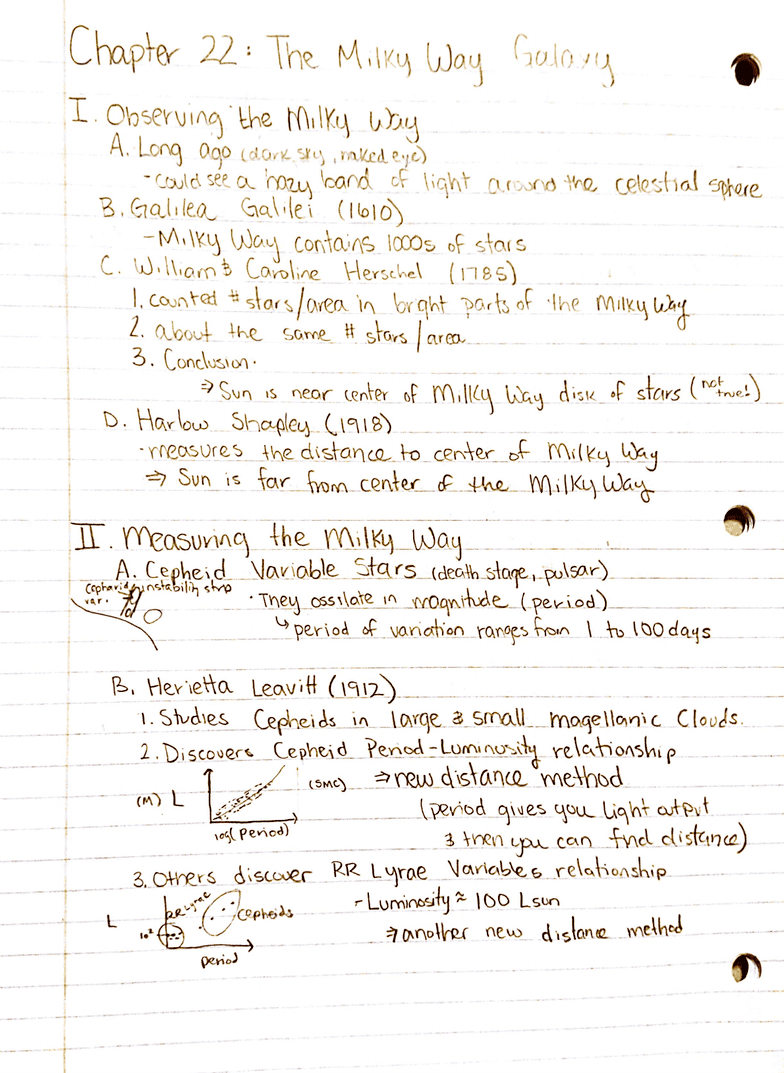 Chapter 22: The Milky Way Galaxy
I. Observing the Milky Way
A. Long ago (dark sky, naked eye)
- could see a hazy band of light around the celestial sphere
B. Galilea Galilei (1610)
- Milky Way contains 1000s of stars
C. William & Caroline Herschel (1785)
1. counted # stars/area in bright parts of the Milky Way
2. about the same # stars/area
3. Conclusion.
⇒ Sun is near center of Milky Way disk of stars (not true!)
D. Harlow Shapley (1918)
· measures the distance to center of Milky Way
⇒ Sun is far from center of the Milky Way
II. Measuring the Milky Way
A. Cepheid Variable Stars (death stage, pulsar)
instability strip
var.
· They ossilate in magnitude (period)
↳ period of variation ranges from 1 to 100 days
B. Herietta Leavitt (1912)
1. Studies Cepheids in large & small magellanic Clouds.
2. Discovers Cepheid Period-Luminosity relationship
(M) L
log(Period)
(SMC)
⇒ new distance method
(period gives you light output
& then you can find distance)
3. Others discover RR Lyrae Variables relationship
L
10²
RR Lyrae
Cepheids
Period
- Luminosity ≈ 100 Lsun
⇒ another new distance method